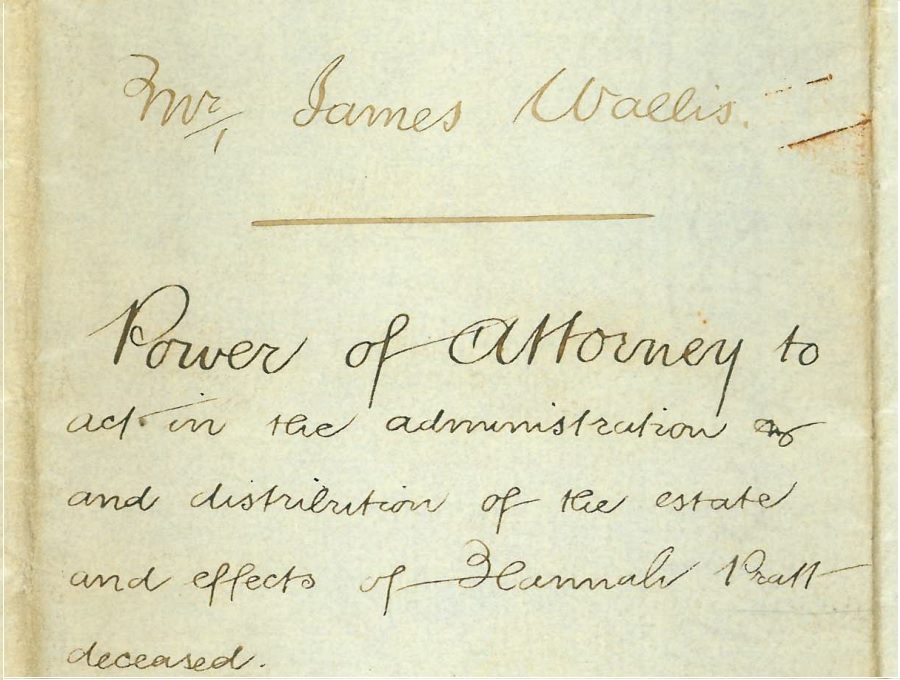 Mr, James Wallis.
Power of Attorney to
act in the administration
and distribution of the estate
and effects of Hannah Pratt
deceased.